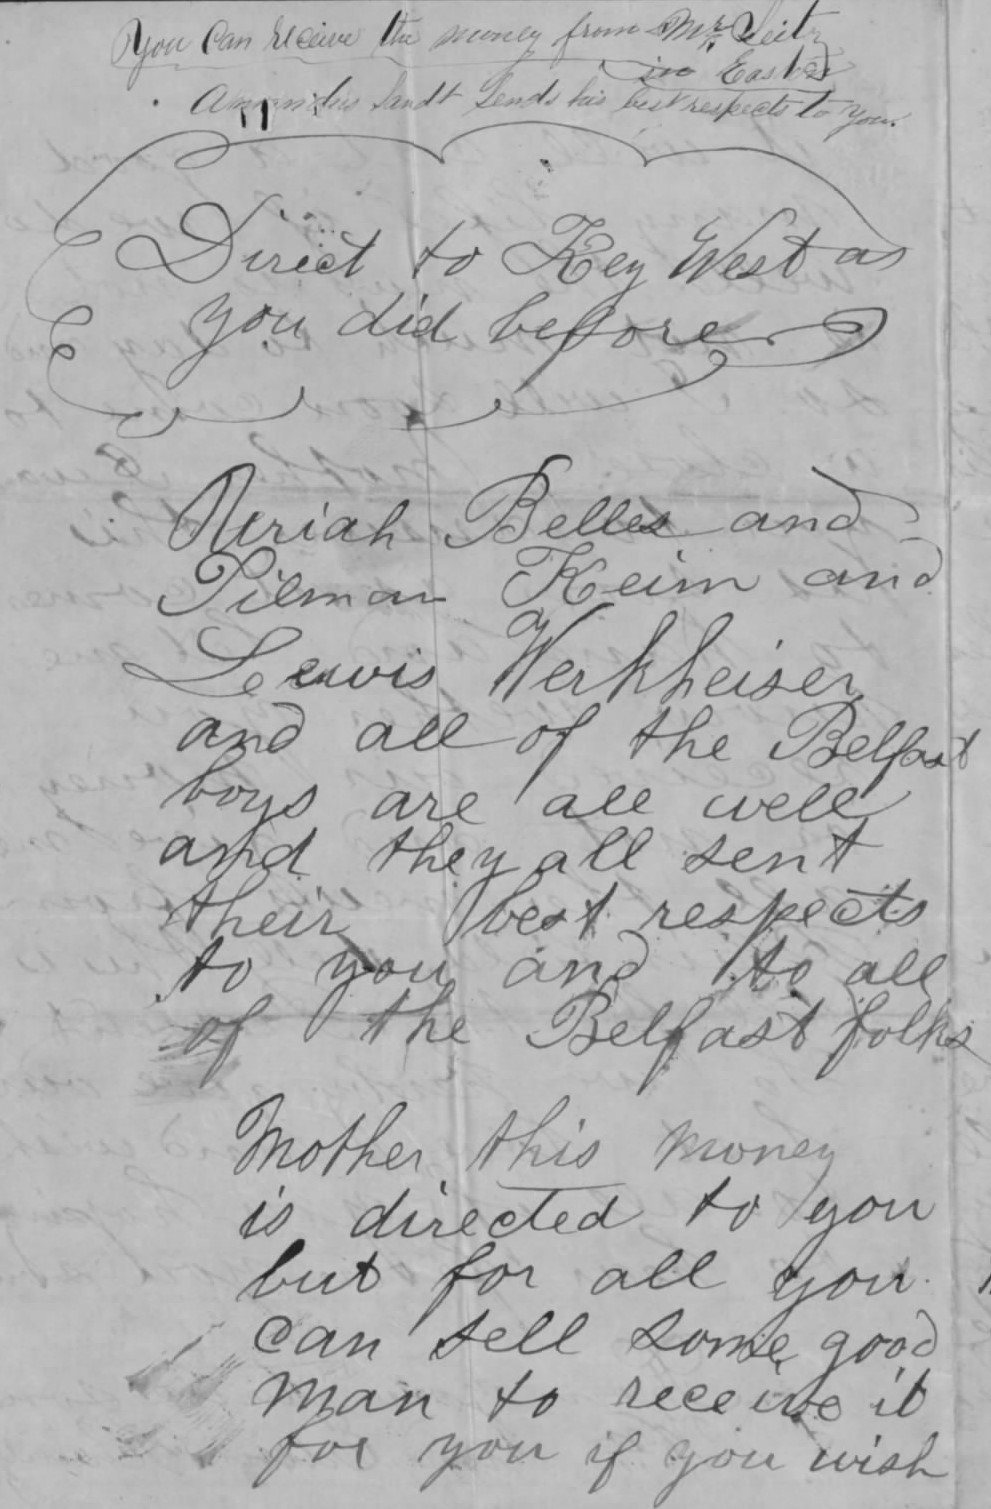 You Can receive the money from Mr. Seitz
in Easton
Amandus Sandt Sends his best respects to you.
Direct to Key West as
you did before
Neriah Belles and
Pilman Keim and
Lewis Werkheiser
and all of the Belfast
boys are all well
and they all sent
their best respects
to you and to all
of the Belfast folks
Mother this money
is directed to you
but for all you
can sell some good
man to receive it
for you if you wish